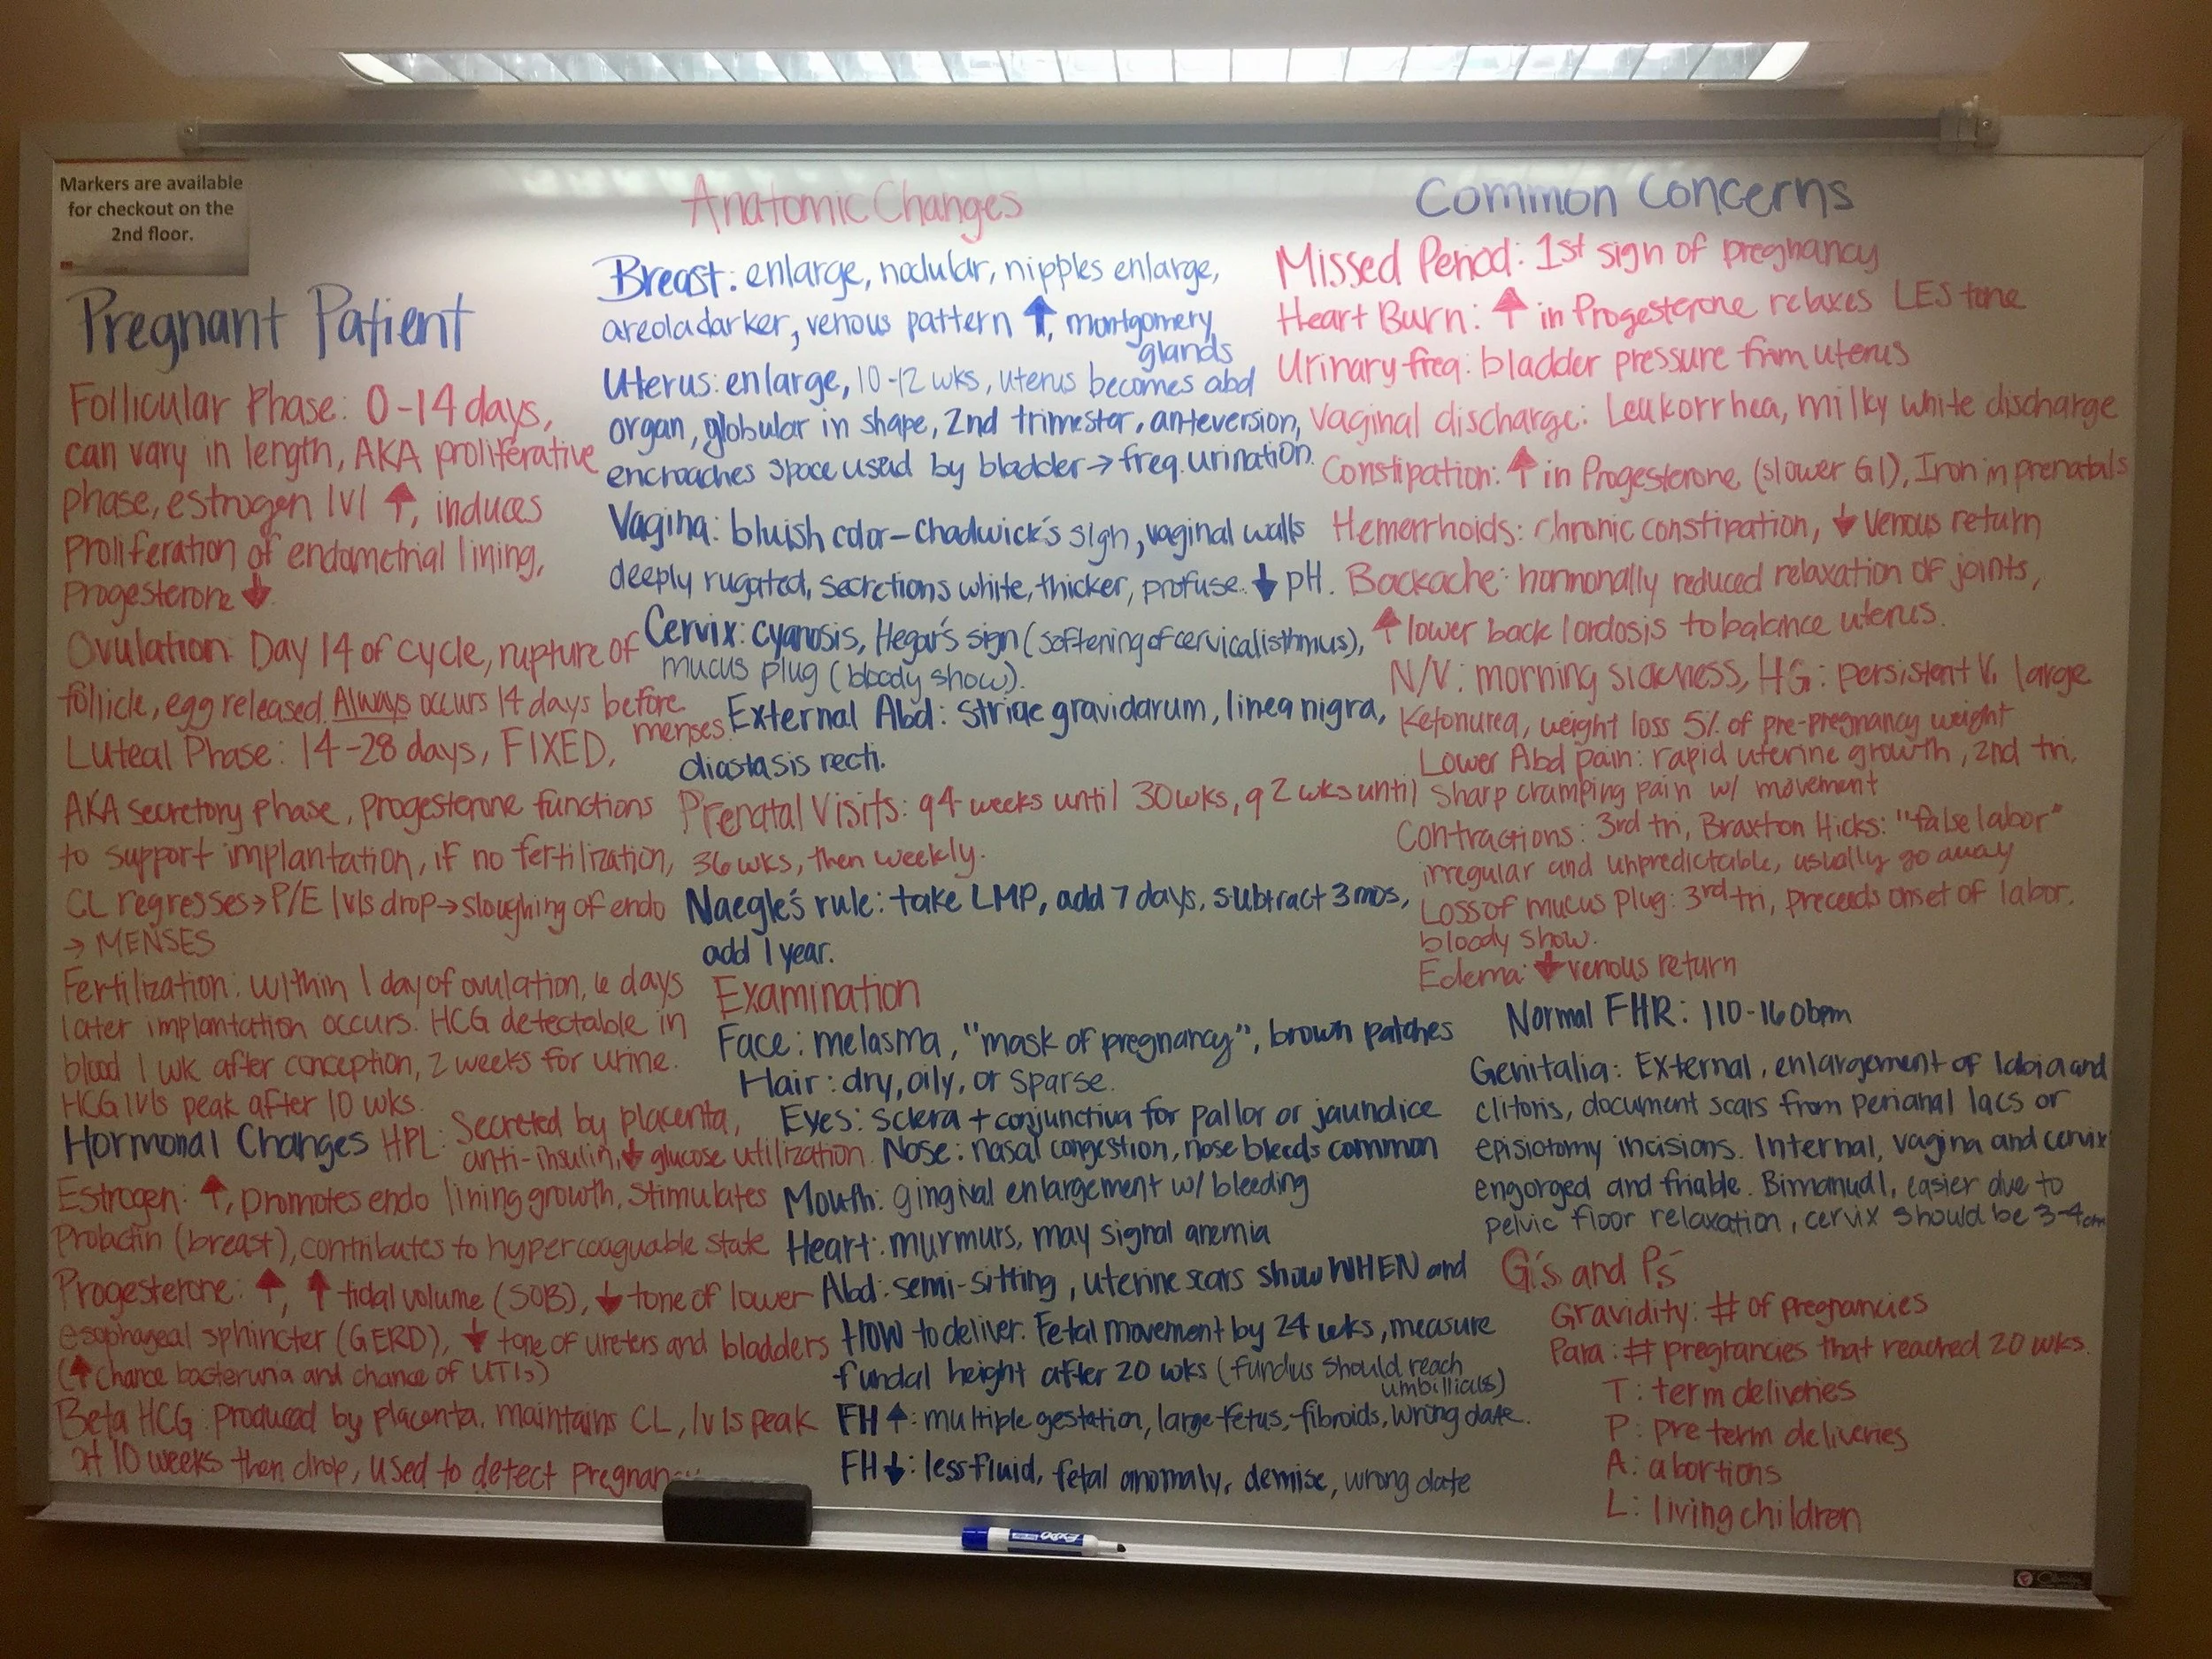 Markers are available
for checkout on the
2nd floor.
Pregnant Patient
Follicular Phase: 0-14 days,
can vary in length, AKA proliferative
phase, estrogen lvl ↑, induces
Proliferation of endometrial lining,
Progesterone ↓
Ovulation: Day 14 of cycle, rupture of
follicle, egg released. Always occurs 14 days before
menses.
Luteal Phase: 14-28 days, FIXED,
AKA secretory phase, progesterone functions
to support implantation, if no fertilization,
CL regresses→P/E lvls drop→sloughing of endo
→ MENSES
Fertilization: within 1 day of ovulation, 6 days
later implantation occurs. HCG detectable in
blood 1 wk after conception, 2 weeks for urine.
HCG lvls peak after 10 wks.
Hormonal Changes
HPL: Secreted by placenta,
anti-insulin, ↓ glucose utilization.
Estrogen: ↑, promotes endo lining growth, stimulates
Prolactin (breast), contributes to hypercoaguable state
Progesterone: ↑, ↑ tidal volume (SOB), ↓ tone of lower
esophageal sphincter (GERD), ↓ tone of ureters and bladders
(↑ chance bacteruria and chance of UTIs)
Beta HCG: Produced by placenta, maintains CL, lvls peak
at 10 weeks then drop, used to detect
Anatomic Changes
Breast: enlarge, nodular, nipples enlarge,
areola darker, venous pattern ↑, montgomery
glands
Uterus: enlarge, 10-12 wks, uterus becomes abd
organ, globular in shape, 2nd trimester, anteversion,
encroaches space used by bladder→freq. urination.
Vagina: bluish color-Chadwick's sign, vaginal walls
deeply rugated, secretions white, thicker, profuse. ↓ pH.
Cervix: cyanosis, Hegar's sign (softening of cervical isthmus),
mucus plug (bloody show).
External Abd: Striae gravidarum, linea nigra,
diastasis recti.
Prenatal Visits: q4 weeks until 30wks, q2 wks until
36 wks, then weekly.
Naegle's rule: take LMP, add 7 days, subtract 3 mos,
add 1 year.
Examination
Face: melasma, "mask of pregnancy", brown patches
Hair: dry, oily, or sparse.
Eyes: sclera + conjunctiva for pallor or jaundice
Nose: nasal congestion, nose bleeds common
Mouth: gingival enlargement w/ bleeding
Heart: murmurs, may signal anemia
Abd: semi-sitting, uterine scars show WHEN and
HOW to deliver. Fetal movement by 24 wks, measure
fundal height after 20 wks (fundus should reach
umbillicus)
FH ↑: multiple gestation, large fetus, fibroids, wrong date.
FH ↓: less fluid, fetal anomaly, demise, wrong date
Common Concerns
Missed Period: 1st sign of pregnancy
Heart Burn: ↑ in Progesterone relaxes LES tone
Urinary freq: bladder pressure from uterus
Vaginal discharge: Leukorrhea, milky white discharge
Constipation: ↑ in Progesterone (slower GI), Iron in prenatals
Hemerrhoids: Chronic constipation, ↓ venous return
Backache: hormonally reduced relaxation of joints,
↑ lower back lordosis to balance uterus.
N/V: morning sickness, HG: persistent V, large
Ketonurea, weight loss 5% of pre-pregnancy weight
Lower Abd pain: rapid uterine growth, 2nd tri,
Sharp cramping pain w/ movement
Contractions: 3rd tri, Braxton Hicks: "false labor"
irregular and unpredictable, usually go away
Loss of mucus plug: 3rd tri, preceeds onset of labor.
bloody show.
Edema: ↓ venous return
Normal FHR: 110-160bpm
Genitalia: External, enlargement of labia and
clitoris, document scars from perianal lacs or
episiotomy incisions. Internal, vagina and cervix
engorged and friable. Bimanual, easier due to
pelvic floor relaxation, cervix should be 3-4cm
G's and P's
Gravidity: # of pregnancies
Para: # pregnancies that reached 20 wks.
T: term deliveries
P: preterm deliveries
A: abortions
L: living children
EXPO